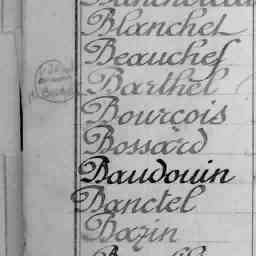 Blanchet
Beauchef
Barthel
Bourcois
Bossard
Baudouin
Banctel
Bazin